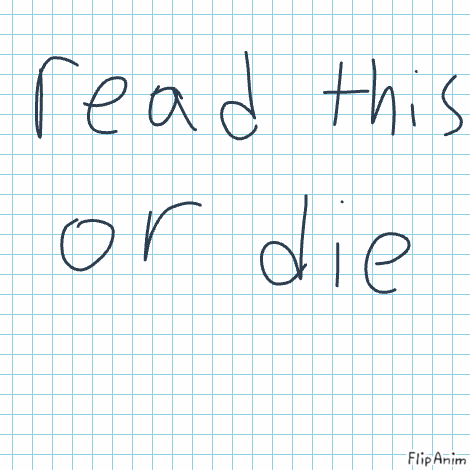 read this
or die
FlipAnim